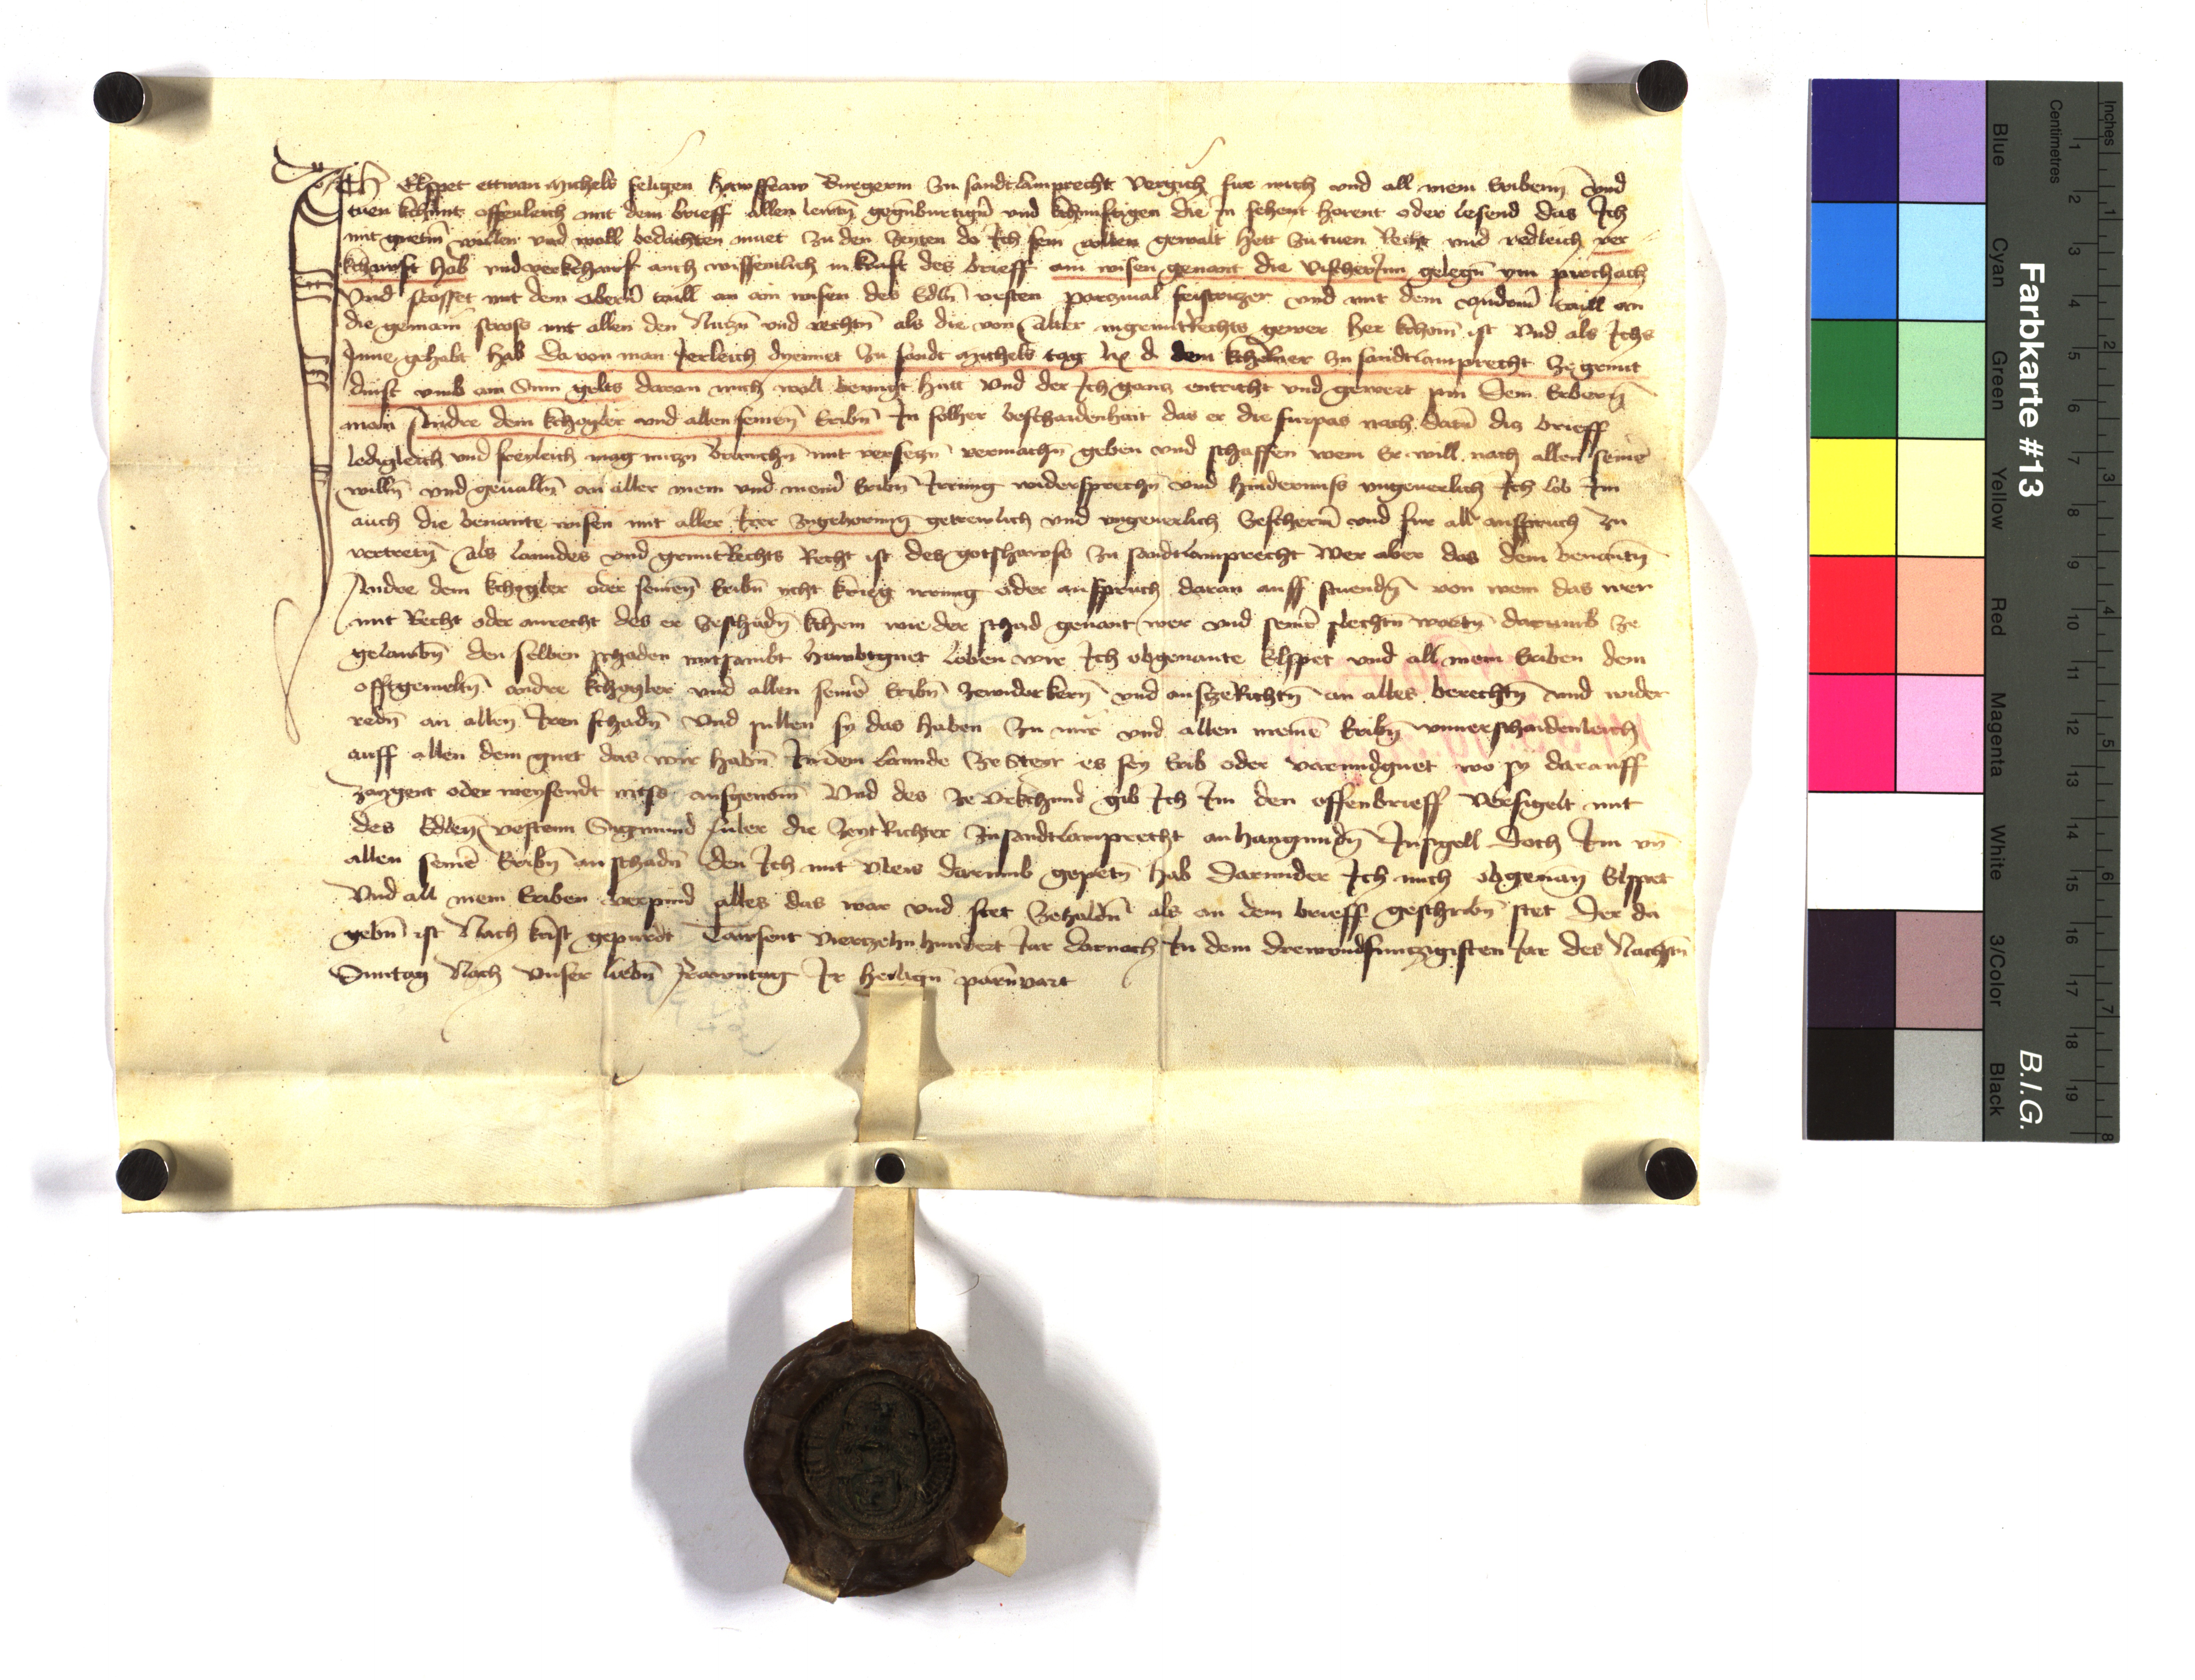 Ich Elspet ettwan Michels seligen hawsfraw Burgerin zu sandt lamprecht vergich fur mich und all mein Eriben und
tuen kchunt offenleich mit dem brieff allen leutn gegnburtign und kchunftigen die in sehent horent oder lesend das Ich
mit guetm willen und woll bedachten muet zu den zeyten do Ich sein wollen gewalt hett zu tuen Recht und redleich ver
kchawft hab und verkchawf auch wissenlich in kraft des brieff ain wisen genant die vischerinn gelegn
und stosset mit dem obern taill an ain wisen des Edln vesten parzival feistrizer und mit dem undern taill an
die gemain strass mit allen den Nuczn und rechtn als die von alter in gemut Rechts gewer her kchomen ist und als Ichs
Inne gehabt hab da von man Jerleich dyennet zu sandt Michels tag lx d dem kchelner zu sandt lamprecht ze grunt
dinst umb ain Sum gelts daran mich woll benugt hatt und der Ich gancz entricht und gewert pin Dem Erbern
man Andre dem kchogler und allen seinen Eribn In solher beschaidenhait das er die furpas nach datum dicz brieff
ledigleich und freyleich mag nuczn brauchn mit verseczn vermachn geben und schaffen wem Er will nach allen seinen
willn und geualln an aller mein und meiner Eribn Irrung widersprechn und hindernuss ungeuerlich Ich lob Im
auch die benante wisen mit aller Irer zugehorung getrewlich und ungeuerlich beschermen und fur all anspruch zu
vertretn als lanndes und grunt Rechts Recht ist des gotshawss zu sandt lamprecht Wer aber das dem benantn
Andre dem kchogler oder seinen Eribn icht krieg irrung oder anspruch daran auff stuendn von wem das wer
mit Recht oder unrecht des er ze schadn kchem wie der schad genant wer und seinen slechtn wortn darumb ze
gelawbn den selben schaden mitsambt hawbtguet loben wir Ich obgenante Elspet und all mein Eriben dem
offtgemeltn andre kchogler und allen seinen Eribn ze widerkern und ausze Richtn an alles berechtn und wider
redn an allen Iren schadn Und sullen sy das haben zu mir und allen meinen Eribn unuerschaidenleich
auff allen dem guet das wir habn In dem lannde ze Steyr es sey Erib oder varundguet wo sy darauff
zaygent oder weysendt nichs ausgenomen Und des ze urkchund gib Ich Im den offenbrieff versigelt mit
des Edlen vestenn Sigmund die zeyt Richter zu sandt lamprecht anhangundn Insigell Doch Im und
allen seinen Eribn an schadn den Ich mit vleis darumb gepetn hab Darunder Ich mich obgenante Elspet
Und all mein Eriben verpind alles das war und stet ze haldn als an dem brieff geschribn stet Der da
gebn ist Nach krist gepurdt Tawsent vierczehn hundert Jar darnach In dem drewundfunczigisten Jar des Nachstn
Suntag Nach unser liebn frawntag Ir heilign
Farbkarte #13
B.I.G.
Inches
Centimetres
1 2 3 4 5 6 7 8 9 10 11 12 13 14 15 16 17 18 19
1 2 3 4 5 6 7 8
Blue
Cyan
Green
Yellow
Red
Magenta
White
3/Color
Black